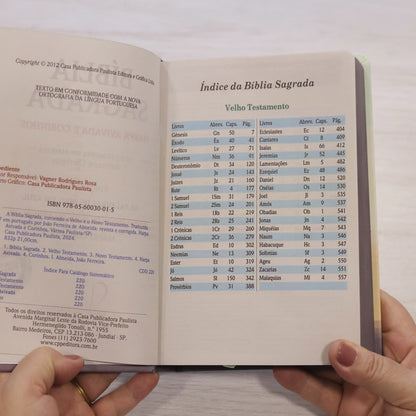 Copyright © 2012 Casa Publicadora Paulista Editora e Gráfica Ltda
TEXTO EM CONFORMIDADE COM A NOVA
ORTOGRAFIA DA LÍNGUA PORTUGUESA
BÍBLIA
SAGRADA
pediente
or Responsável: Vagner Rodrigues Rosa
to Gráfico: Casa Publicadora Paulista
ISBN 978-65-60030-01-5
A Bíblia Sagrada, contendo o Velho e o Novo Testamento. Traduzida
em português por João Ferreira de Almeida: revista e corrigida. Harpa
Avivada e Corinhos.
Casa Publicadora Paulista, 2024.
832p 21,05cm.
1. Bíblia Sagrada. 2. Velho Testamento. 3. Novo Testamento. 4. Harpa
Avivada. 4. Corinhos. I. Almeida, João Ferreira.
CDD 220
Índice Para Catálogo Sistemático
Sagrada 220
Testamento 220
Testamento 220
Todos os direitos reservados à Casa Publicadora Paulista
Avenida Marginal Leste da Rodovia Vice-Prefeito
Hermenegildo Tonolli, n.º 1955
Bairro Medeiros, CEP 13.213-086 - Jundiaí - SP
Fone: (11) 2923-7600
www.cppeditora.com.br
Índice da Bíblia Sagrada
Velho Testamento
Livros Abrev. Caps. Pág.
Gênesis Gn 50 7
Êxodo Êx 40 41
Levítico Lv 27 71
Números Nm 36 91
Deuteronômio Dt 34 120
Josué Js 24 143
Juízes Jz 21 160
Rute Rt 4 177
1 Samuel 1Sm 31 179
2 Samuel 2Sm 24 201
1 Reis 1Rs 22 219
2 Reis 2Rs 25 240
1 Crônicas 1Cr 29 260
2 Crônicas 2Cr 36 280
Esdras Ed 10 302
Neemias Ne 13 309
Ester Et 10 319
Jó Jó 42 324
Salmos Sl 150 342
Provérbios Pv 31 388
Livros Abrev. Caps. Pág.
Eclesiastes Ec 12 404
Cantares Ct 8 409
Isaías Is 66 412
Jeremias Jr 52 445
Lamentações Lm 5 482
Ezequiel Ez 48 486
Daniel Dn 12 520
Oséias Os 14 531
Joel Jl 3 535
Amós Am 9 537
Obadias Ob 1 541
Jonas Jn 4 542
Miquéias Mq 7 543
Naum Na 3 546
Habacuque Hc 3
Sofonias Sf 3
Ageu Ag 2 550
Zacarias Zc 14 551
Malaquias Ml 4 557